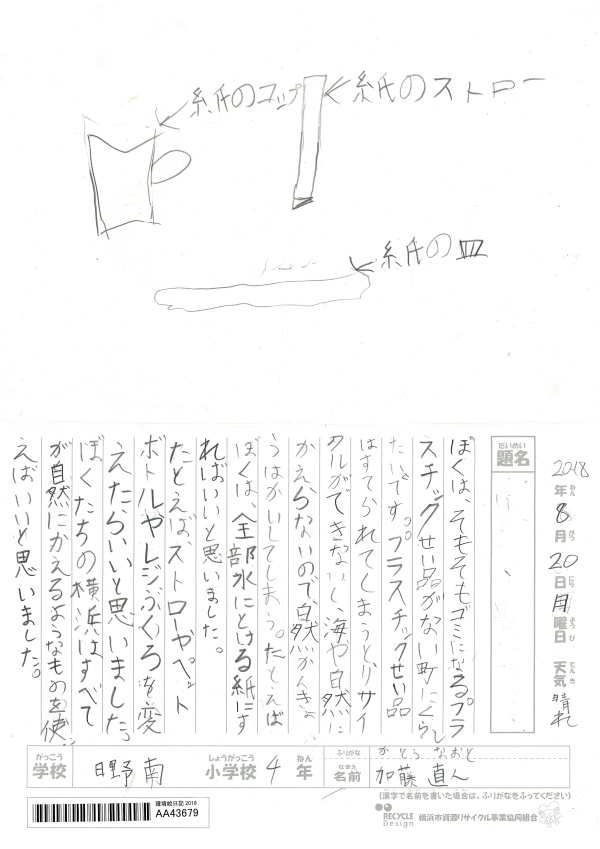 紙のコップ
紙のストロー
紙の皿
2018年8月20日月曜日 天気 晴れ
ねん がつ にち ようび てんき
だいめい
題名
ぼくは、そもそもゴミになるプラ
スチックせい品がない町にくらし
たいです。プラスチックせい品
はすてられてしまうと、リサイ
クルができないし、海や自然に
かえらないので自然かんきょ
うはかいしてしまう。たとえば
ぼくは、全部水にとける紙にす
ればいいと思いました。
たとえば、ストローやペット
ボトルやレジぶくろを変
えたらいいと思いました。
ぼくたちの横浜はすべて
が自然にかえるようなものを使
えばいいと思いました。
がっこう しょうがっこう ねん ふりがな かとう なおと
学校 日野南 小学校 4年 なまえ 名前 加藤 直人
(漢字で名前を書いた場合は、ふりがなをふってください)
環境絵日記2018
AA43679
RECYCLE Design 横浜市資源リサイクル事業協同組合